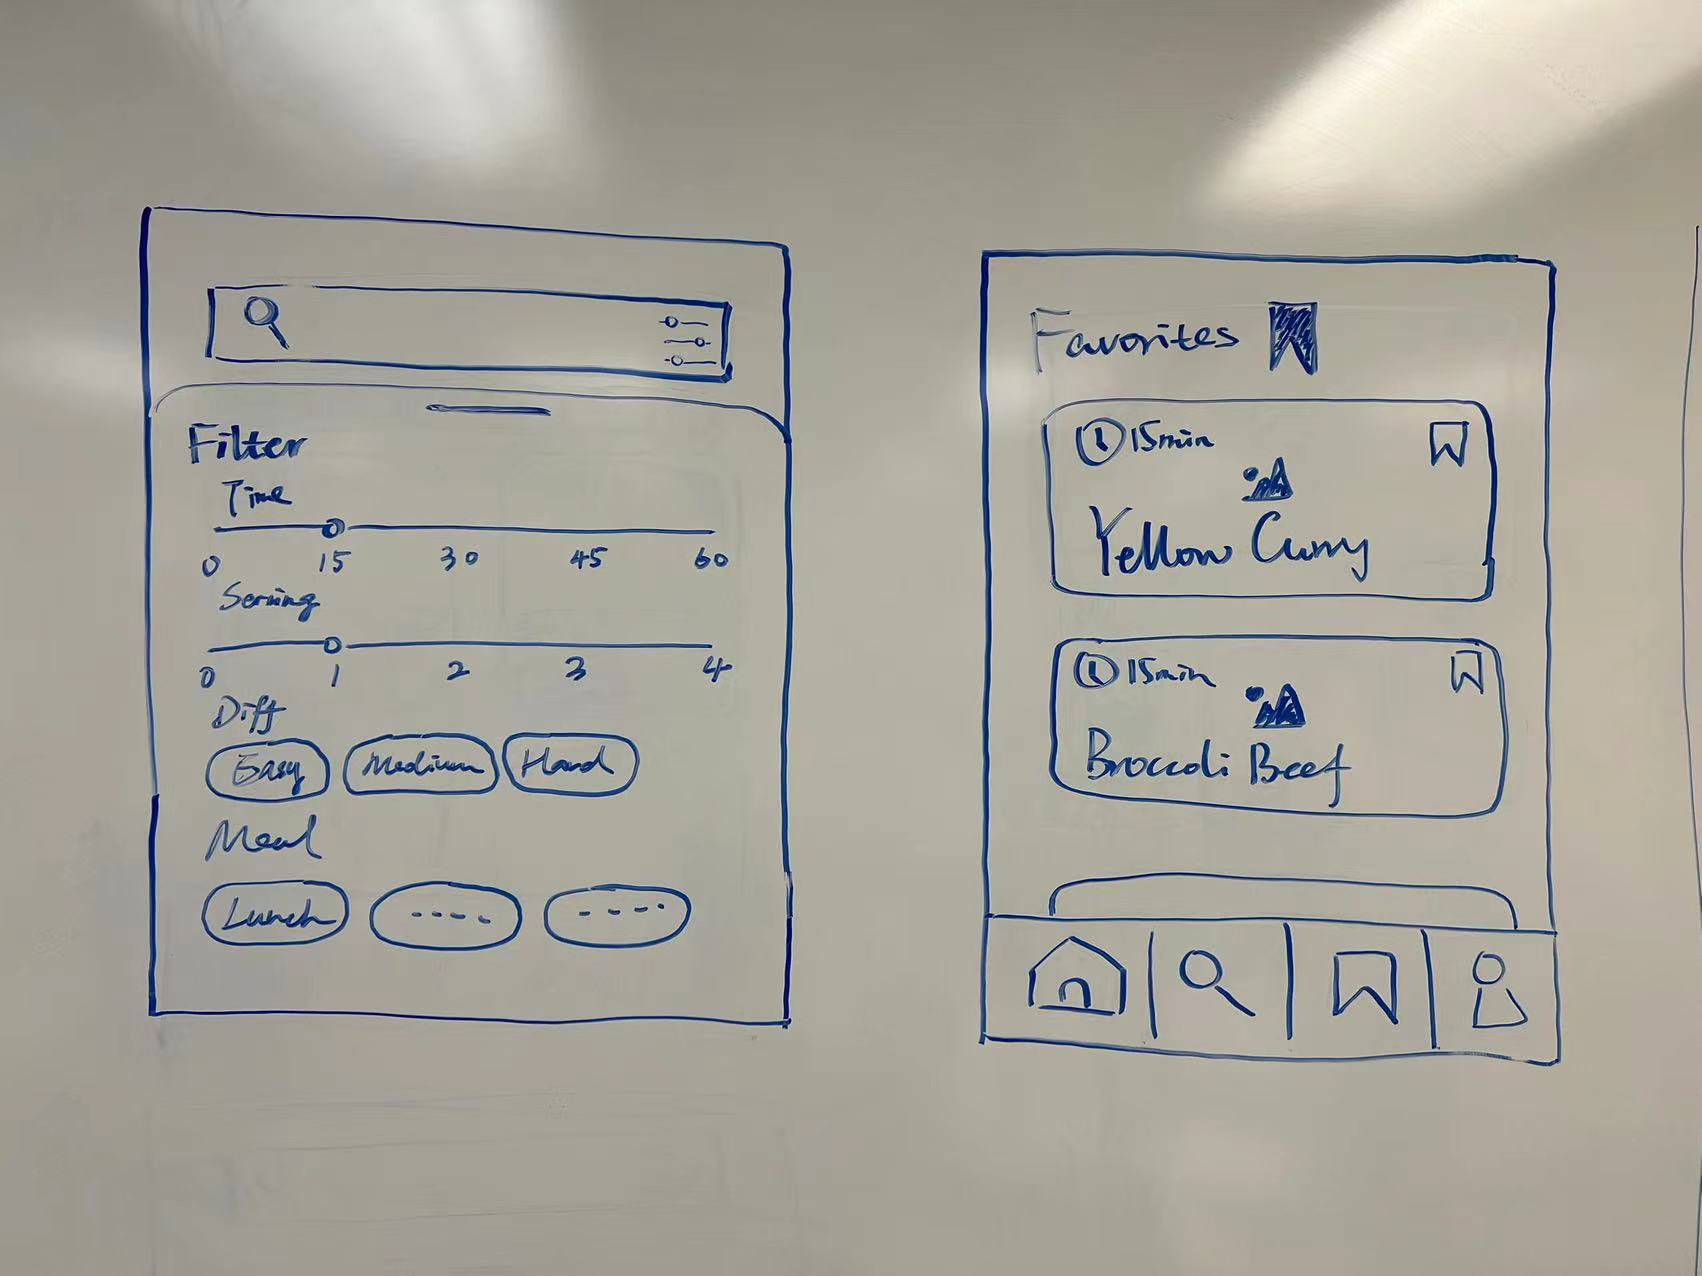 Filter
Time
0 15 30 45 60
Serving
0 1 2 3 4
Diff
Easy Medium Hard
Meal
Lunch ---- ----
Favorites
15min
Yellow Curry
15min
Broccoli Beef